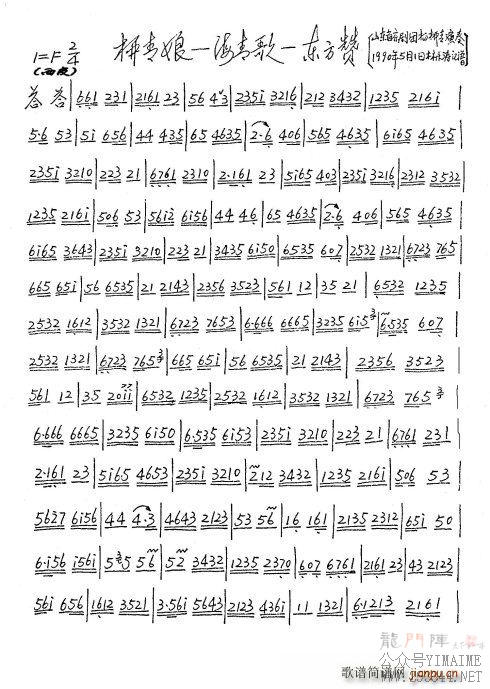 柳青娘—海青歌—东方赞
1=F 2/4
1990年5月1日
661 231 | 2161 23 | 56 43 | 235i 3216 | 212 3432 | 1235 216i
5·6 53 | 5i 656 | 44 435 | 65 4635 | 2·6 406 | 565 4635 | 6i65 4635
235i 3210 | 223 21 | 6761 2310 | 2·161 23 | 5i65 403 | 235i 3216 | 2312 3532
1235 216i | 506 53 | 56i2 6i56 | 44 46 | 65 4635 | 2·6 406 | 565 4635
6i65 3643 | 235i 3210 | 223 21 | 3435 6i50 | 6535 607 | 2532 1321 | 6723 765
665 65i | 56 6535 | 21 2143 | 2356 3523 | 561 12 | 35 21 | 6532 1235
2532 1612 | 3532 1321 | 6723 7653 | 6·666 6665 | 3235 6i5 | 6·535 607
2532 1321 | 6723 765 | 665 65i | 56 6535 | 21 2143 | 2356 3523
561 12 | 35 20ii | 6532 1235 | 2532 1612 | 3532 1321 | 6723 765
6·666 6665 | 3235 6i50 | 6·535 6i53 | 235i 3210 | 223 21 | 6761 231
2·161 23 | 5i65 4653 | 235i 3210 | 212 3432 | 1235 216i | 506 53
5627 6i56 | 44 4·3 | 4643 2123 | 53 56 | 16 161 | 2135 2312 | 65i 50
6·i56 i56i | 5 5 56 | 52 3432 | 1235 2370 | 607 6761 | 2161 23 | 43 2123
56i 656 | 1612 3521 | 3·56i 5643 | 2123 436i | 11 1321 | 6·1213 2161
龍門陣
公众号YIMAIME
歌谱简谱网 jianpu.cn